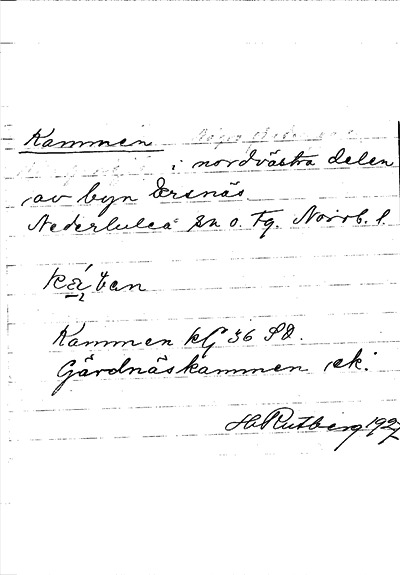 Kammen
i nordvästra delen
av byn Ersnäs
Nederluleå sn o. tg. Norrb. l.
Kammen kG 36 SO.
Gärdnäskammen, ek.
H Rutberg 1927